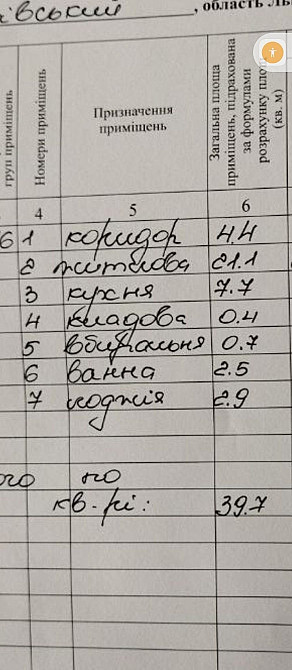 івський, область Ль
груп приміщень
Номери приміщень
Призначення
приміщень
Загальна площа
приміщень, підрахована
за формулами
розрахунку площ
(кв. м)
4 5 6
6 1 коридор 4.4
2 житлова 21.1
3 кухня 7.7
4 кладова 0.4
5 вбиральня 0.7
6 ванна 2.5
7 лоджія 2.9
ого по
кв-рі: 39.7